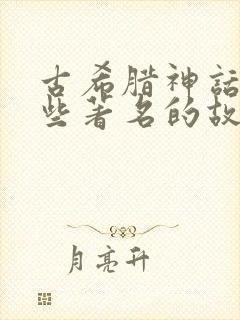 古希腊神话
些著名的故
月亮升